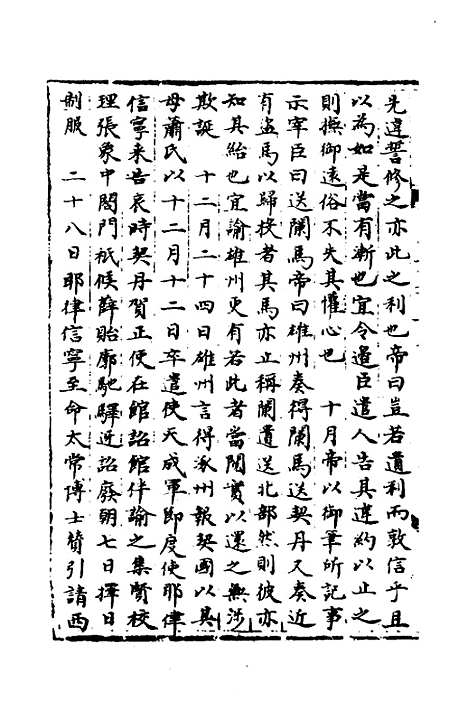 先違誓修之亦此之利也帝曰豈若遺利而敦信乎且
以為如是當有漸也宜令邊臣遣人告其違約以止之
則撫御遠俗不失其懽心也　十月帝以御筆所記事
示宰臣曰送闌馬帝曰雄州奏得闌馬送契丹又奏近
有盜馬以歸投者其馬亦止稱闌遺送北部然則彼亦
知其紿也宜諭雄州更有若此者當閱實以還之無涉
欺誕　十二月二十四日雄州言得涿州報契國以其
母蕭氏以十二月十二日卒遣使天成軍節度使耶律
信寧來告哀時契丹賀正使在館詔館伴諭之集賢校
理張象中閤門祗候薛貽廓馳驛迓詔廢朝七日擇日
制服　二十八日耶律信寧至命太常博士贊引請西